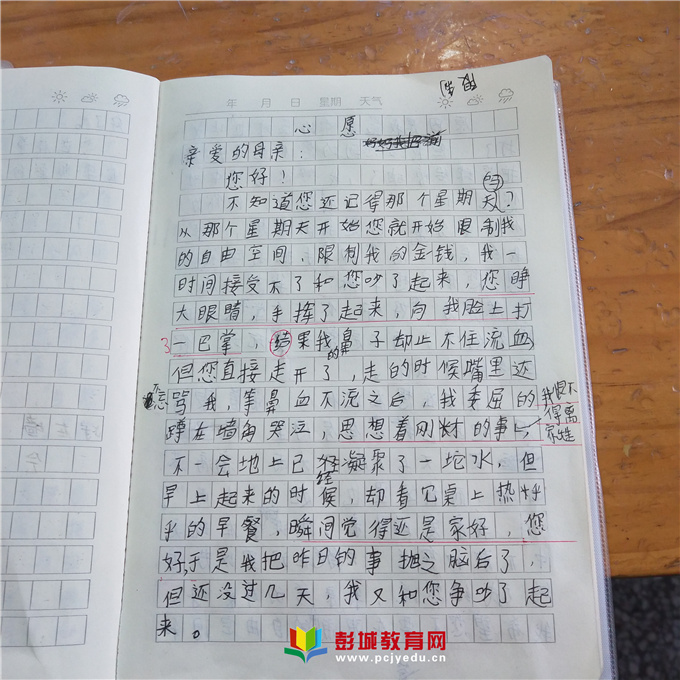 年 月 日 星期 天气
心愿
亲爱的母亲:
您好!
不知道您还记得那个星期天的?
从那个星期天开始您就开始限制我
的自由空间,限制我的金钱,我一
时间接受不了和您吵了起来,您睁
大眼睛,手挥了起来,向我脸上打
3
一巴掌,结果我的鼻子却止不住流血
但您直接走开了,走的时候嘴里还
不忘骂我,等鼻血不流之后,我委屈的
我恨不得离家
蹲在墙角哭泣,思想着刚才的事,
不一会地上已经凝聚了一坨水,但
早上起来的时候,却看见桌上热乎
乎的早餐,瞬间觉得还是家好,您
好,于是我把昨日的事抛之脑后了,
但还没过几天,我又和您争吵了起
来。
彭城教育网
www.pcjyedu.cn